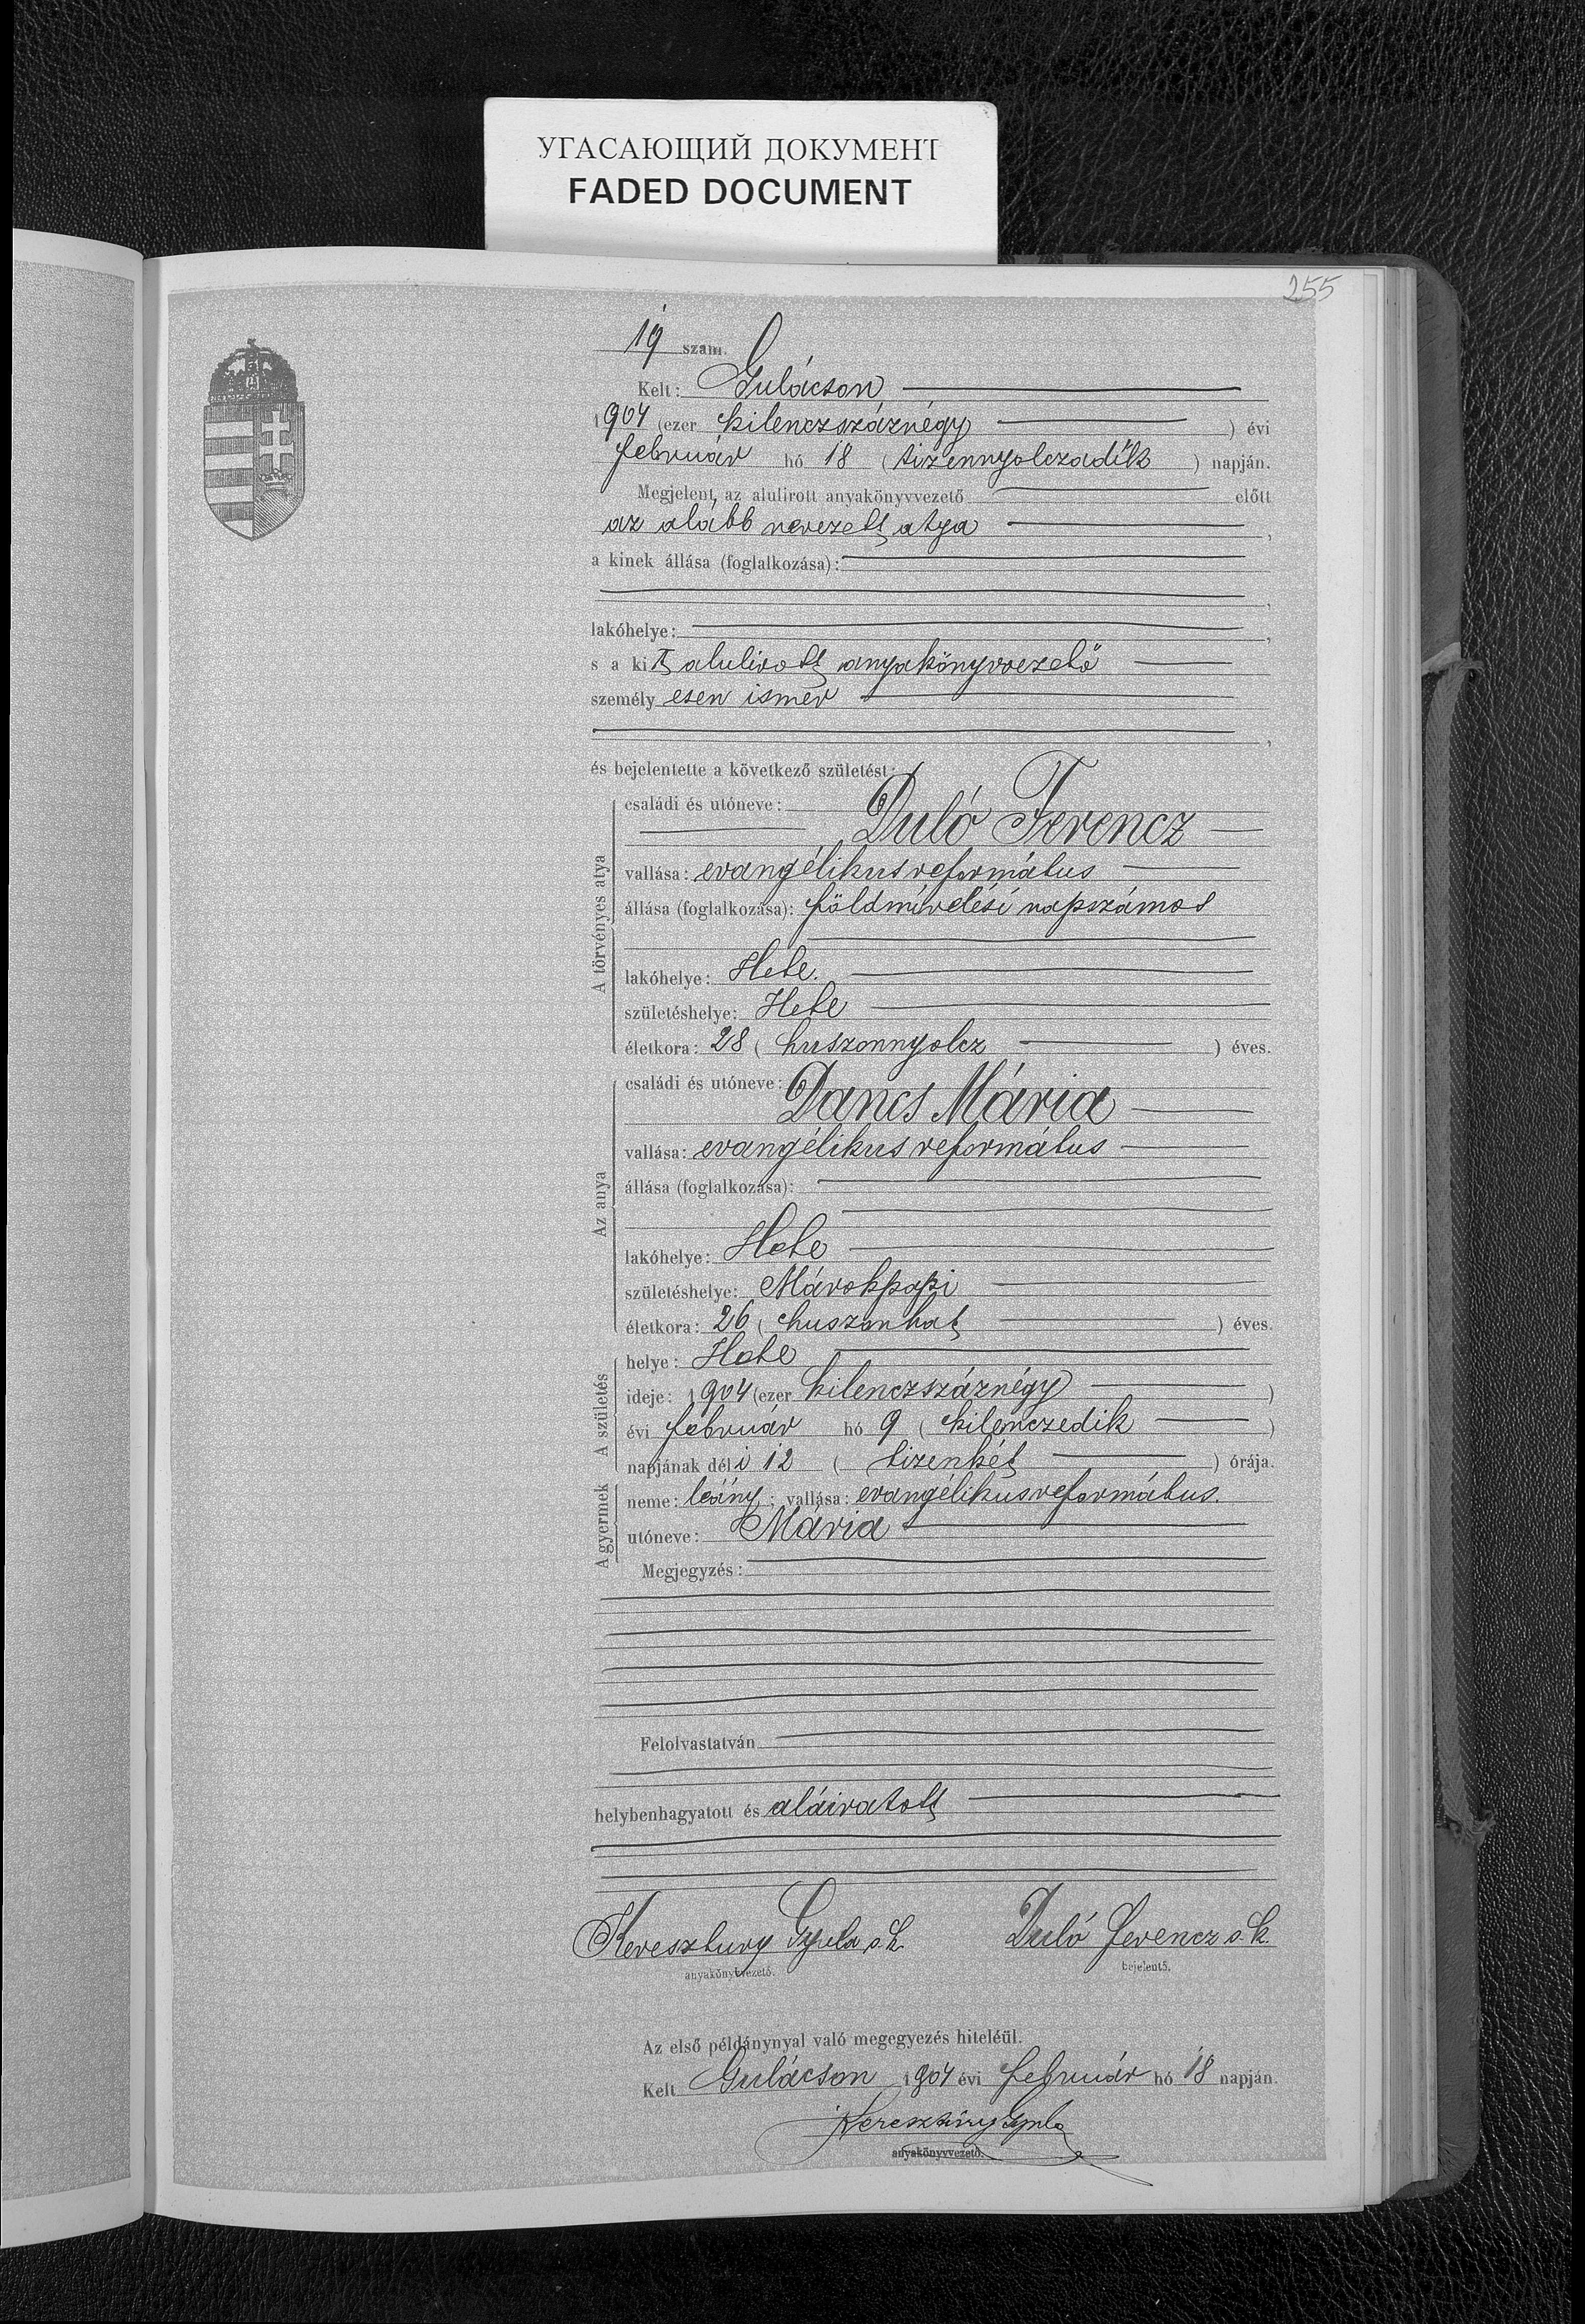 УГАСАЮЩИЙ ДОКУМЕНТ
FADED DOCUMENT
255
19 szám.
Kelt: Gulácson
1904 (ezer kilenczszáznégy ) évi
február hó 18 (tizennyolczadik ) napján.
Megjelent, az alulirott anyakönyvvezető előtt
az alább nevezett atya ,
a kinek állása (foglalkozása):
,
lakóhelye: ,
s a kit alulirott anyakönyvvezető
személyesen ismer
,
és bejelentette a következő születést:
A törvényes atya
családi és utóneve:
Duló Ferencz
vallása: evangélikus református
állása (foglalkozása): földmívelési napszámos
lakóhelye: Hete.
születéshelye: Hete
életkora: 28 (huszonnyolcz ) éves.
Az anya
családi és utóneve:
Dancs Mária
vallása: evangélikus református
állása (foglalkozása):
lakóhelye: Hete
születéshelye: Márokpapi
életkora: 26 (huszonhat ) éves.
A születés
helye: Hete
ideje: 1904 (ezer kilenczszáznégy )
évi február hó 9 (kilenczedik )
napjának déli 12 (tizenkét ) órája.
A gyermek
neme: leány; vallása: evangélikus református.
utóneve: Mária
Megjegyzés:
Felolvastatván
helybenhagyatott és aláiratott
Keresztury Gyula s. k. Duló Ferencz s. k.
anyakönyvvezető. bejelentő.
Az első példánynyal való megegyezés hiteléül.
Kelt Gulácson 1904 évi február hó 18 napján.
Keresztury Gyula
anyakönyvvezető.